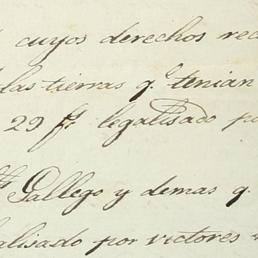 cuyos derechos rec
las tierras q. tenian
29 fs legalisado po
Gallego y demas q.
alisado por victores